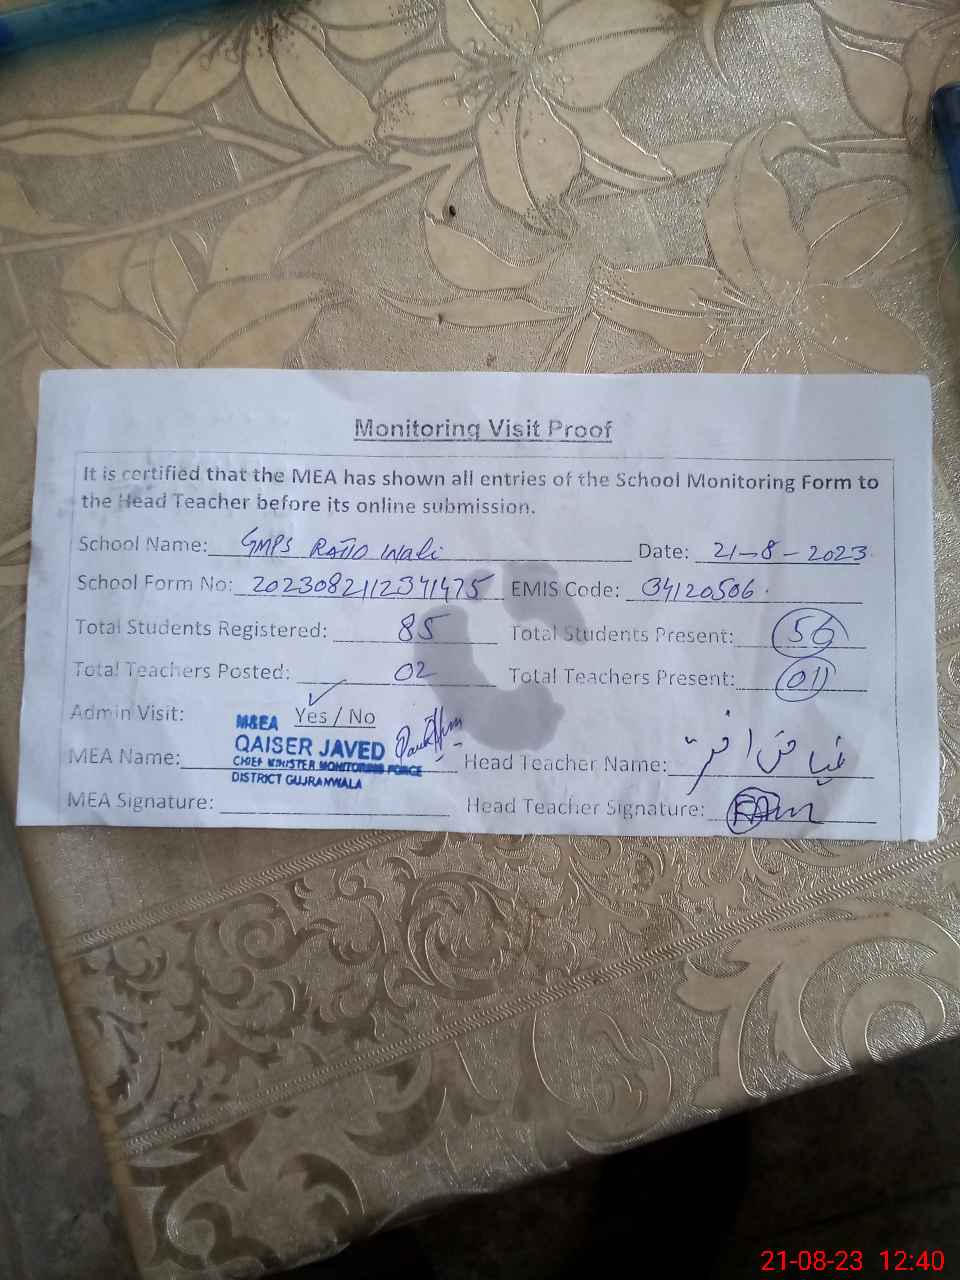 Monitoring Visit Proof
It is certified that the MEA has shown all entries of the School Monitoring Form to
the Head Teacher before its online submission.
School Name: GMPS Ratto Wali Date: 21-8-2023
School Form No: EMIS Code: 34120506
Total Students Registered: 85 Total Students Present: 56
Total Teachers Posted: 02 Total Teachers Present: 01
Admin Visit: Yes / No
M&EA
QAISER JAVED
CHIEF MINISTER MONITORING FORCE
DISTRICT GUJRANWALA
MEA Name: Head Teacher Name:
MEA Signature: Head Teacher Signature:
21-08-23 12:40